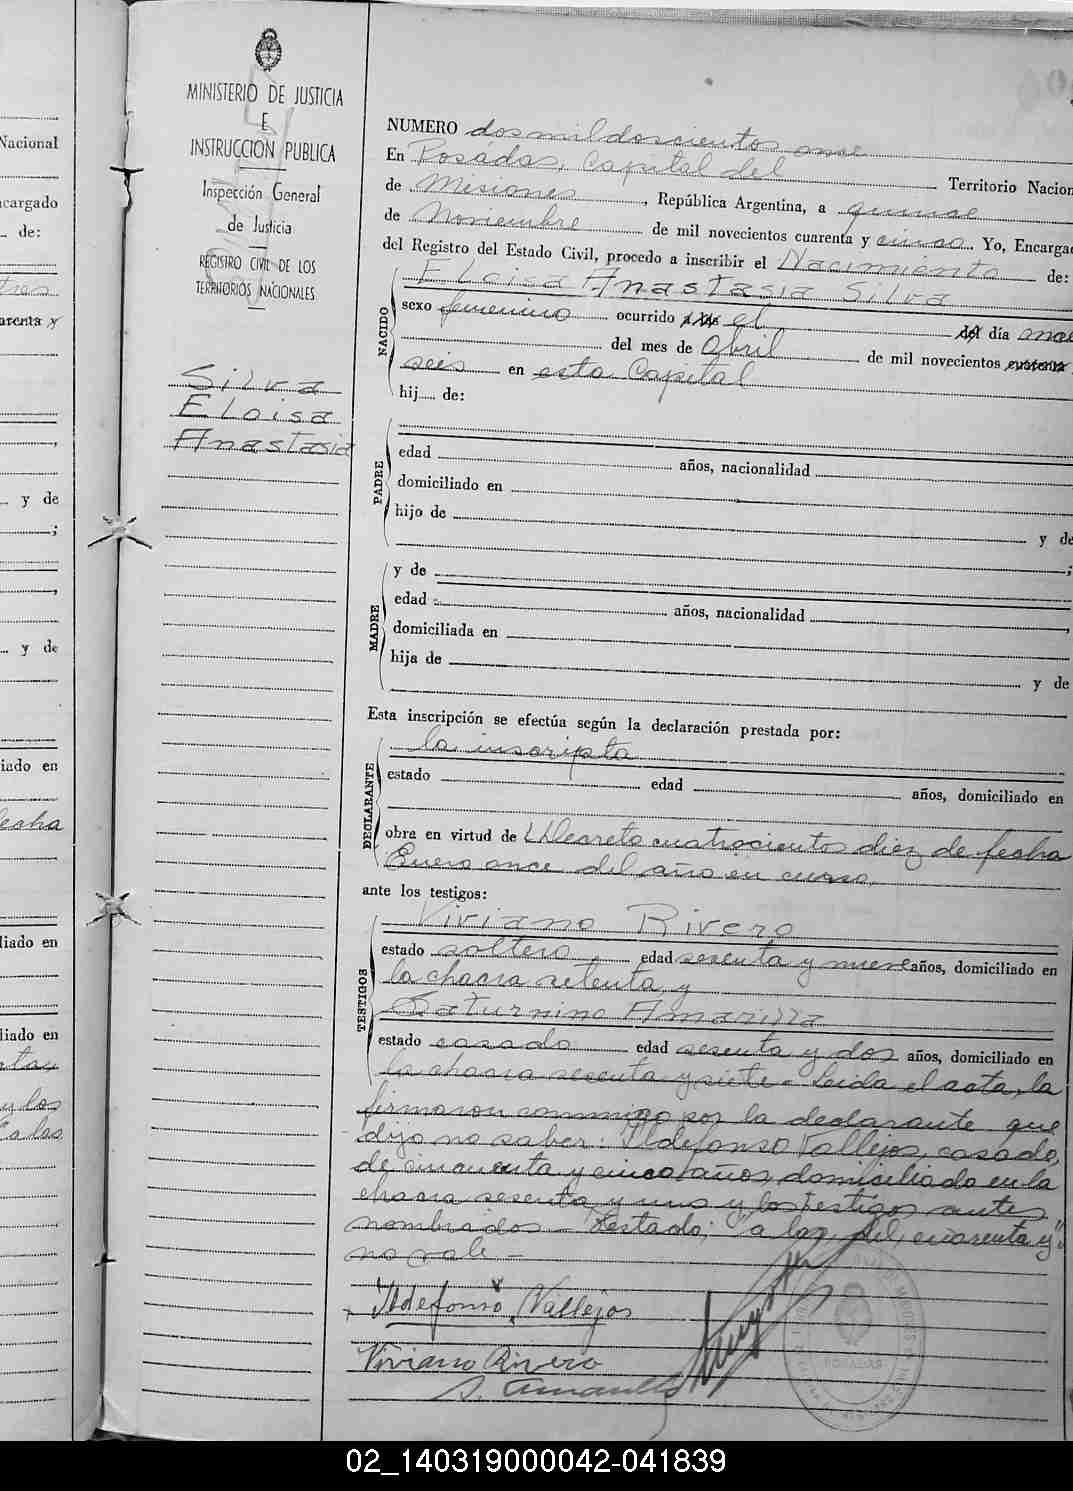 Nacional
ncargado
de:
tres
y de
;
y de
iado en
fecha
liado en
liado en
y los
a las
MINISTERIO DE JUSTICIA
E
INSTRUCCIÓN PUBLICA
Inspección General
de Justicia
REGISTRO CIVIL DE LOS
TERRITORIOS NACIONALES
Silva
Eloisa
Anastasia
NUMERO dosmildoscientos once
En Posadas, Capital del Territorio Nacion
de Misiones, República Argentina, a quinse
de Noviembre de mil novecientos cuarenta y cinco. Yo, Encarga
del Registro del Estado Civil, procedo a inscribir el Nacimiento de:
NACIDO
Eloisa Anastasia Silva
sexo femenino ocurrido a las el del día once
del mes de Abril de mil novecientos cuarenta
seis en esta Capital
hij de:
PADRE
edad años, nacionalidad
domiciliado en
hijo de y de
;
MADRE
y de
edad años, nacionalidad
domiciliada en
hija de y de
Esta inscripción se efectúa según la declaración prestada por:
DECLARANTE
la inscripta
estado edad años, domiciliado en
obra en virtud de Decreto cuatrocientos diez de fecha
Enero once del año en curso,
ante los testigos:
TESTIGOS
Viviano Rivero
estado soltero edad sesenta y nueve años, domiciliado en
la chacra setenta, y
Saturnino Amarilla
estado casado edad sesenta y dos años, domiciliado en
la chacra sesenta y siete - Leida el acta, la
firmaron conmigo por la declarante que
dijo no saber: Ildefonso Vallejos, casado,
de cincuenta y cinco años, domiciliado en la
chacra sesenta y uno y los testigos antes
nombrados - Testado; "a las, del, cuarenta y"
no vale -
Ildefonso Vallejos
Viviano Rivero
S. Amarilla
POSADAS
02_140319000042-041839